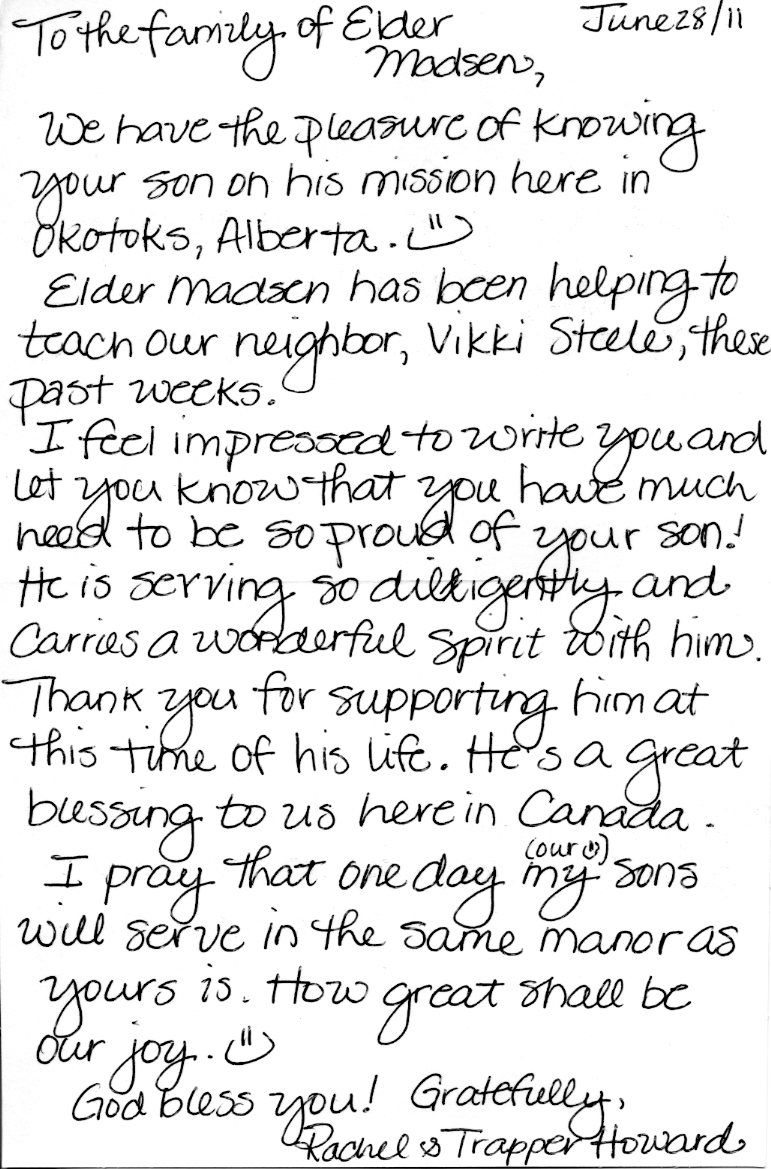 To the family of Elder June 28/11
Madsen,
We have the pleasure of knowing
your son on his mission here in
Okotoks, Alberta.
Elder Madsen has been helping to
teach our neighbor, Vikki Steele, these
past weeks.
I feel impressed to write you and
let you know that you have much
need to be so proud of your son!
He is serving so dilligently and
carries a wonderful spirit with him.
Thank you for supporting him at
this time of his life. He's a great
blessing to us here in Canada.
(our)
I pray that one day my sons
will serve in the same manor as
yours is. How great shall be
our joy.
God bless you! Gratefully,
Rachel & Trapper Howard